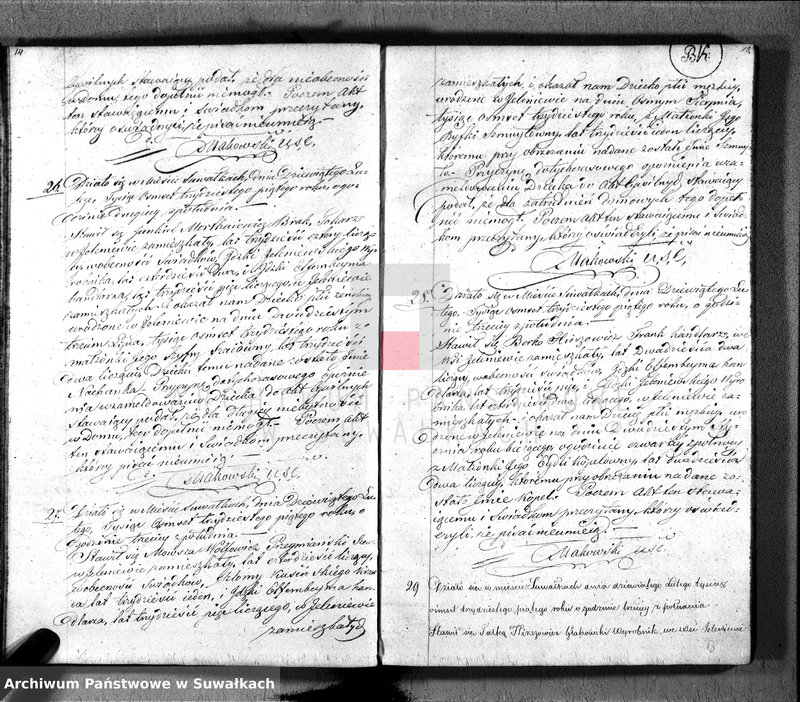 14.
Cywilnych stawaiący podał, że dla nieobecności
w domu, tego dopełnić niemógł. Poczem Akt
ten stawaiącemu i Swiadkom przeczytany,
który oswiadczył, że pisać nieumie.
Makowski U.S.C.
26. Działo się w Miescie Suwałkach, dnia Dziewiątego Lu-
tego, Tysiąc Osmset trzydziestego piątego roku, o go-
dzinie drugiey z południa.
Stawił się Jankiel Morthaiewicz Brak,
w Jeleniewie zamieszkały, lat trzydzieści cztery liczący
w obecności Swiadków, Joski Jeleniewskiego Wy-
robnika, lat czterdzieści dwa, i Joski Esztembeyma
handlarza, lat trzydzieści pięć liczącego, w Jeleniewie
zamieszkałych i okazał nam Dziecko płci żeńskiey,
urodzone w Jeleniewie na dniu Dwudziestym
trzecim Lipca, tysiąc osmset trzydziestego roku z
małżonki jego lat trzydzieści
dwa liczącey. Dziecku temu nadane zostało Imie
Nachanka. Przyczynę dotychczasowego opóźnie-
nia w zameldowaniu Dziecka do Akt Cywilnych
Stawaiący podał, że dla długiey niebytności
w domu, tego dopełnić niemógł. Poczem Akt
ten stawaiącemu i Swiadkom przeczytany,
który pisać nieumie.
Makowski U.S.C.
27. Działo się w Miescie Suwałkach, dnia Dziewiątego Lu-
tego, Tysiąc Osmset trzydziestego piątego roku, o
godzinie trzeciey z południa.
Stawił się Mowsza Wolfowicz
w Jeleniewie zamieszkały, lat czterdzieści liczący,
w obecności Swiadków, Szlomy
lat trzydzieści ieden, i Joski Esztembeyma han-
dlarza, lat trzydzieści pięć liczącego, w Jeleniewie
zamieszkałych
BK
zamieszkałych, i okazał nam Dziecko płci męzkiey,
urodzone w Jeleniewie na dniu Osmym Sierpnia,
tysiąc osmset trzydziestego roku, z Małżonki Jego
Ryfki Szmuylowny, lat trzydzieści ieden liczącey,
któremu przy obrzezaniu nadane zostało Imie Szmuy-
ło. Przyczynę dotychczasowego opóźnienia w za-
meldowaniu Dziecka do Akt Cywilnych, Stawaiący
podał, że dla zatrudnień domowych tego dopeł-
nić niemógł. Poczem Akt ten Stawaiącemu i Swiad-
kom przeczytany, który oswiadczył, że pisać nieumie.
Makowski U.S.C.
28. Działo się w Miescie Suwałkach, dnia Dziewiątego Lu-
tego, Tysiąc Osmset trzydziestego piątego roku, o godzi-
nie trzeciey z południa.
Stawił się Berko Hirszowicz Frank handlarz, we
Wsi Jeleniewie zamieszkały, lat Dwadzieścia dwa
liczący, w obecności swiadków, Joski Esztembeyma han-
dlarza, lat trzydzieści pięć, i Joski Jeleniewskiego Wyro-
bnika, lat czterdzieści dwa liczącego, w Jeleniewie za-
mieszkałych i okazał nam Dziecię płci męzkiey, uro-
dzone w Jeleniewie na dniu Dwudziestym Sty-
cznia roku bieżącego, o godzinie czwartey z północy
z Małżonki Jego Eydli Kopelowny, lat dwadzieścia
dwa liczącey, któremu przy obrzezaniu nadane zo-
stało Imie Kopel. Poczem Akt ten stawa-
iącemu i Swiadkom przeczytany, który oswiad-
czył, że pisać nieumie.
Makowski U.S.C.
29 Działo się w mieście Suwałkach dnia dziewiątego Lutego tysiąc
osmset trzydziestego piątego roku o godzinie trzeciey z południa
Stawił się Hirszowicz Wyrobnik, we Wsi Jeleniewie
15
Archiwum Państwowe w Suwałkach